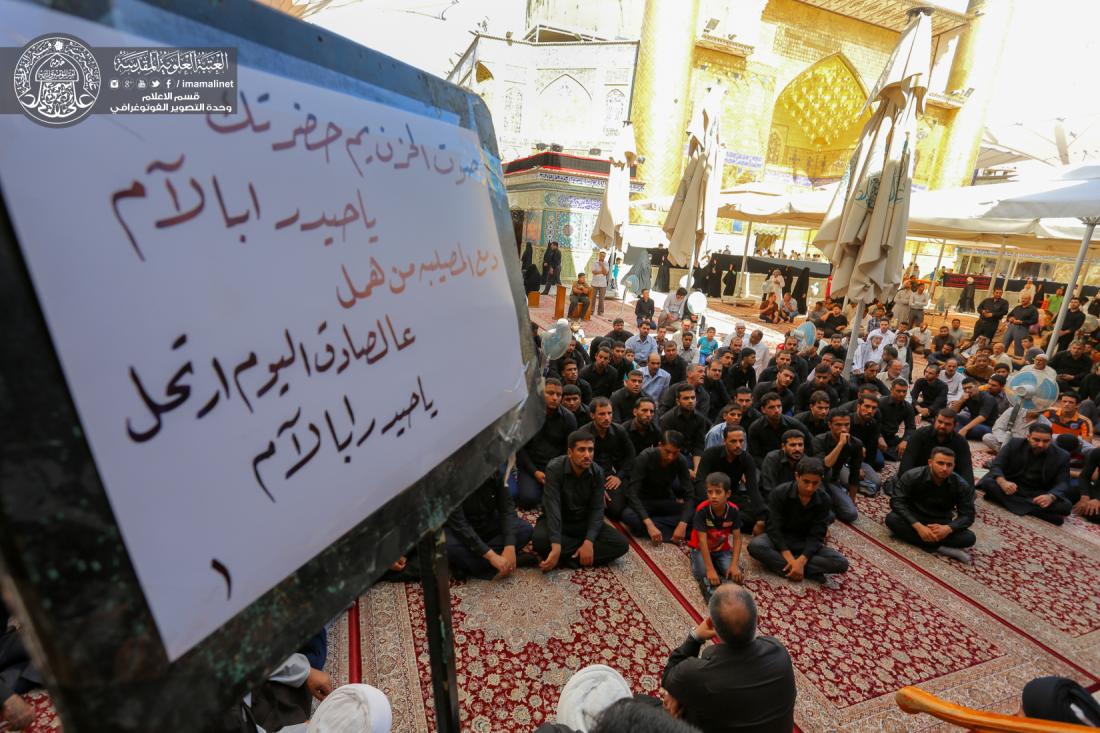 العتبة العلوية المقدسة
imamalinet
قسم الاعلام
وحدة التصوير الفوتوغرافي
صوت الحزن يم حضرتك
ياحيدر ابا لآم
دمع المصيبه من همل
عالصادق اليوم ارتحل
ياحيدر ابا لآم
١